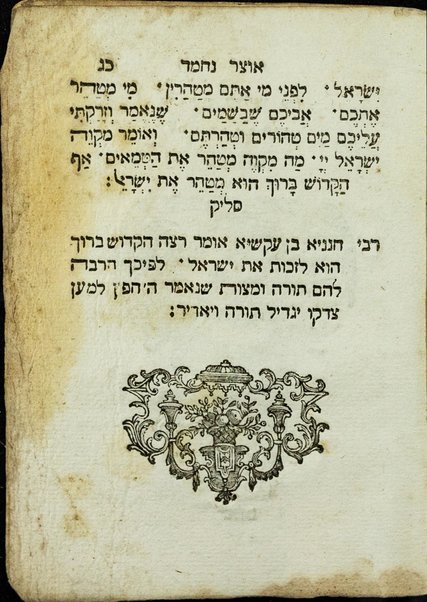 אוצר נחמד כג
יִשְׂרָאֵל· לִפְנֵי מִי אַתֶּם מִטַּהֲרִין· מִי מְטַהֵר
אֶתְכֶם· אֲבִיכֶם שֶׁבַּשָּׁמַיִם· שֶׁנֶּאֱמַר וְזָרַקְתִּי
עֲלֵיכֶם מַיִם טְהוֹרִים וּטְהַרְתֶּם· וְאוֹמֵר מִקְוֵה
יִשְׂרָאֵל יְיָ· מַה מִקְוֶה מְטַהֵר אֶת הַטְּמֵאִים· אַף
הַקָּדוֹשׁ בָּרוּךְ הוּא מְטַהֵר אֶת יִשְׂרָאֵל:
סליק
רבי חנניא בן עקשיא אומר רצה הקדוש ברוך
הוא לזכות את ישראל· לפיכך הרבה
להם תורה ומצות שנאמר ה׳ חפץ למען
צדקו יגדיל תורה ויאדיר: